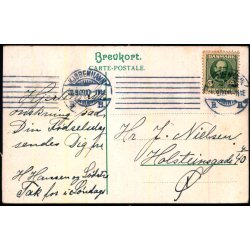 Brevkort.
CARTE-POSTALE.
DANMARK
KJØBENHAVN
Hjertelig
Lykønskning paa
Din Fødselsdag
sendes Dig fra
H. Hansen og Søster
Tak for i Søndags
Hr. J. Nielsen
Holsteinsgade 40
Ø